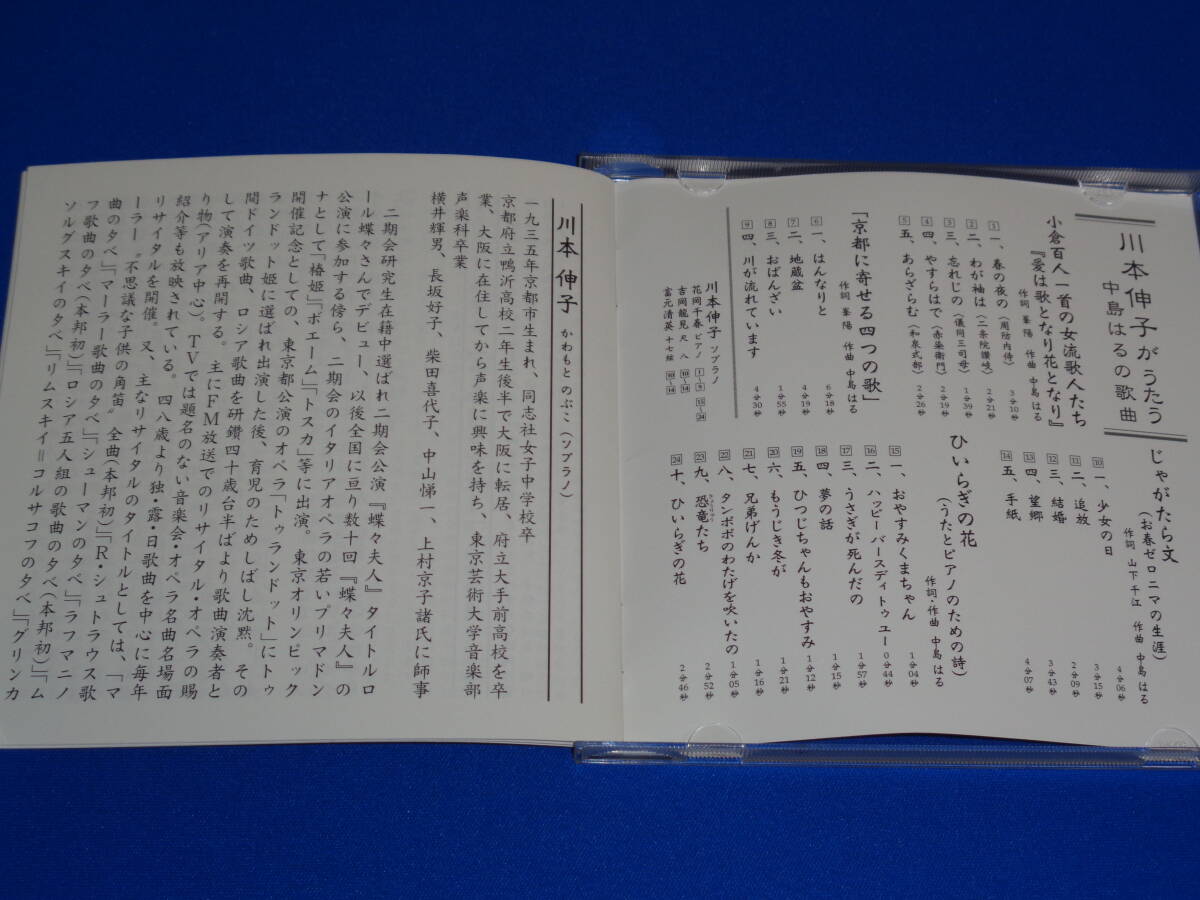 川本伸子がうたう
中島はるの歌曲
小倉百人一首の女流歌人たち
『愛は歌となり花となり』
作詞 峯 陽 作曲 中島はる
1 一、春の夜の(周防内侍) 3分10秒
2 二、わが袖は(二条院讃岐) 2分21秒
3 三、忘れじの(儀同三司母) 1分39秒
4 四、やすらはで(赤染衛門) 2分19秒
5 五、あらざらむ(和泉式部) 2分26秒
「京都に寄せる四つの歌」
作詞 峯 陽 作曲 中島はる
6 一、はんなりと 6分18秒
7 二、地蔵盆 4分19秒
8 三、おばんざい 1分55秒
9 四、川が流れています 4分30秒
川本伸子 ソプラノ
花岡千春 ピアノ 1〜9 15〜24
吉岡龍見 尺八 10〜14
富元清英 十七絃 10〜14
じゃがたら文
(お春ゼロニマの生涯)
作詞 山下千江 作曲 中島はる
10 一、少女の日 4分06秒
11 二、追放 3分15秒
12 三、結婚 2分09秒
13 四、望郷 3分43秒
14 五、手紙 4分07秒
ひいらぎの花
(うたとピアノのための詩)
作詞・作曲 中島はる
15 一、おやすみくまちゃん 1分04秒
16 二、ハッピーバースディトゥユー 0分44秒
17 三、うさぎが死んだの 1分57秒
18 四、夢の話 1分15秒
19 五、ひつじちゃんもおやすみ 1分12秒
20 六、もうじき冬が 1分21秒
21 七、兄弟げんか 1分16秒
22 八、タンポポのわたげを吹いたの 1分05秒
23 九、恐竜たち 2分52秒
24 十、ひいらぎの花 2分46秒
川本 伸子 かわもと のぶこ(ソプラノ)
一九三五年京都市生まれ、同志社女子中学校卒
京都府立鴨沂高校二年生後半で大阪に転居、府立大手前高校を卒
業、大阪に在住してから声楽に興味を持ち、東京芸術大学音楽部
声楽科卒業
横井輝男、長坂好子、柴田喜代子、中山悌一、上村京子諸氏に師事
二期会研究生在籍中選ばれ二期会公演『蝶々夫人』タイトルロ
ール蝶々さんでデビュー、以後全国に亘り数十回『蝶々夫人』の
公演に参加する傍ら、二期会のイタリアオペラの若いプリマドン
ナとして「椿姫」「ボエーム」「トスカ」等に出演。東京オリンピック
開催記念としての、東京都公演のオペラ「トゥランドット」にトゥ
ランドット姫に選ばれ出演した後、育児のためしばし沈黙。その
間ドイツ歌曲、ロシア歌曲を研鑽四十歳台半ばより歌曲演奏者と
して演奏を再開する。主にFM放送でのリサイタル・オペラの賜
り物(アリア中心)。TVでは題名のない音楽会・オペラ名曲名場面
紹介等も放映されている。四八歳より独・露・日歌曲を中心に毎年
リサイタルを開催。又、主なリサイタルのタイトルとしては、「マ
ーラー〝不思議な子供の角笛〟全曲(本邦初)」「R・シュトラウス歌
曲の夕べ」「マーラー歌曲の夕べ」「シューマンの夕べ」「ラフマニノ
フ歌曲の夕べ(本邦初)」「ロシア五人組の歌曲の夕べ(本邦初)」「ム
ソルグスキイの夕べ」「リムスキイ＝コルサコフの夕べ」「グリンカ